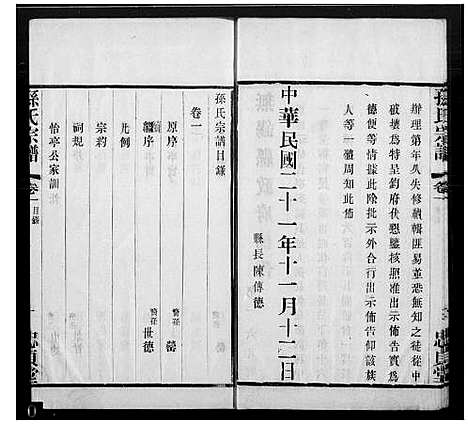 孫氏宗譜
卷一
辦理第年久失修續輯匪易董恐無知之徒從中
破壞為特呈鈞府伏懇鑒核照准出示佈告以為
德便等情據此除批示外合行出示佈告仰該族
人等一體周知此佈
縣長陳傳德
中華民國二十一年十一月十二日
忠貞堂
孫氏宗譜目錄
卷一
原序
續序
凡例
宗約
祠規
怡亭公家訓
裔孫
裔孫 世德
孫氏宗譜
卷一
目錄
一
忠貞堂